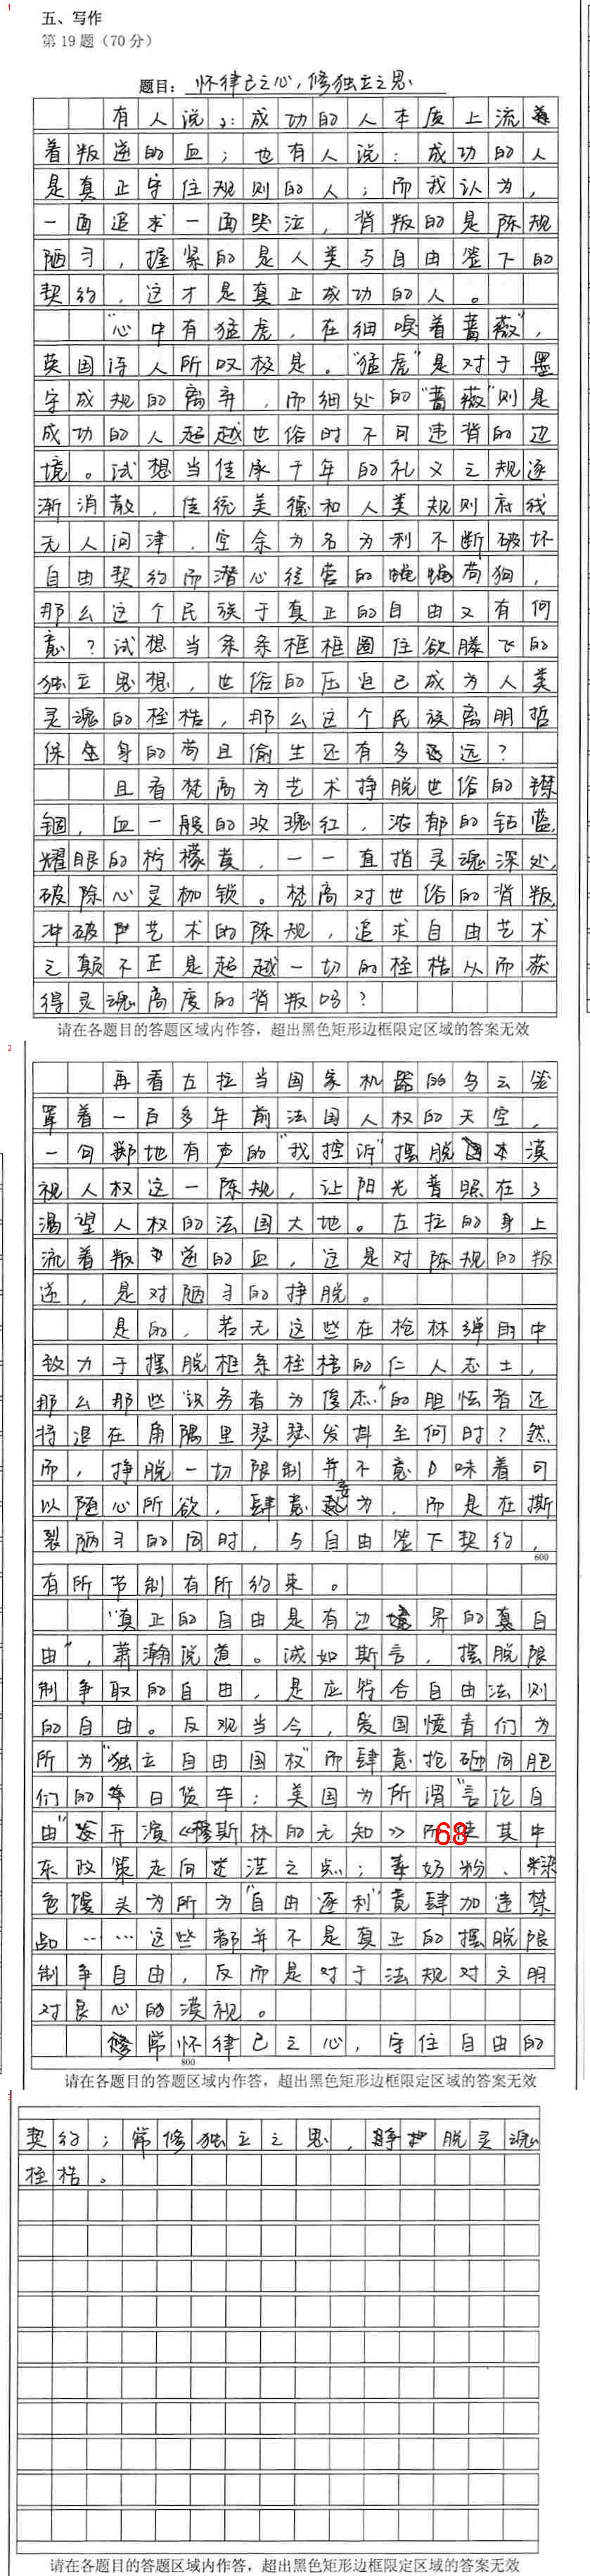 1
五、写作
第19题（70分）
题目：怀律己之心，修独立之思
有人说：成功的人本质上流
着叛逆的血；也有人说：成功的人
是真正守住规则的人；而我认为，
一面追求一面哭泣，背叛的是陈规
陋习，握紧的是人类与自由签下的
契约，这才是真正成功的人。
“心中有猛虎，在细嗅着蔷薇”，
英国诗人所叹极是。“猛虎”是对于墨
守成规的离弃，而细处的“蔷薇”则是
成功的人超越世俗时不可违背的边
境。试想当传承千年的礼义之规逐
渐消散，传统美德和人类规则
无人问津，空余为名为利不断破坏
自由契约而潜心经营的蝇苟狗，
那么这个民族于真正的自由又有何
意？试想当条条框框圈住欲腾飞的
独立思想，世俗的压迫已成为人类
灵魂的桎梏，那么这个民族离明哲
保身的苟且偷生还有多远？
且看梵高为艺术挣脱世俗的禁
锢，血一般的玫瑰红，浓郁的钴蓝，
耀眼的柠檬黄，一一直指灵魂深处，
破除心灵枷锁。梵高对世俗的背叛，
冲破艺术的陈规，追求自由艺术
之颠不正是超越一切的桎梏从而获
得灵魂高度的背叛吗？
请在各题目的答题区域内作答，超出黑色矩形边框限定区域的答案无效
2
再看左拉当国家机器的乌云笼
罩着一百多年前法国人权的天空，
一句掷地有声的“我控诉”摆脱本漠
视人权这一陈规，让阳光普照在了
渴望人权的法国大地。左拉的身上
流着叛逆的血，这是对陈规的叛
逆，是对陋习的挣脱。
是的，若无这些在枪林弹雨中
致力于摆脱框条桎梏的仁人志士，
那么那些“识务者为俊杰”的胆怯者还
将退在角隅里瑟瑟发抖至何时？然
而，挣脱一切限制并不意味着可
以随心所欲，肆意妄为，而是在撕
裂陋习的同时，与自由签下契约，
600
有所节制有所约束。
“真正的自由是有边界的真自
由”，萧瀚说道。诚如斯言，摆脱限
制争取的自由，是应符合自由法则
的自由。反观当今，爱国愤青们为
所为“独立自由国权”而肆意抢砸同胞
们的日货车；美国为所谓“言论自
由”开演《穆斯林的无知》而使其中
68
东政策走向迷茫之点；毒奶粉、染
色馒头为所为“自由逐利”竟肆加违禁
品……这些都并不是真正的摆脱限
制争自由，反而是对于法规对文明
对良心的漠视。
常怀律己之心，守住自由的
800
请在各题目的答题区域内作答，超出黑色矩形边框限定区域的答案无效
3
契约；常修独立之思，挣脱灵魂
桎梏。
请在各题目的答题区域内作答，超出黑色矩形边框限定区域的答案无效